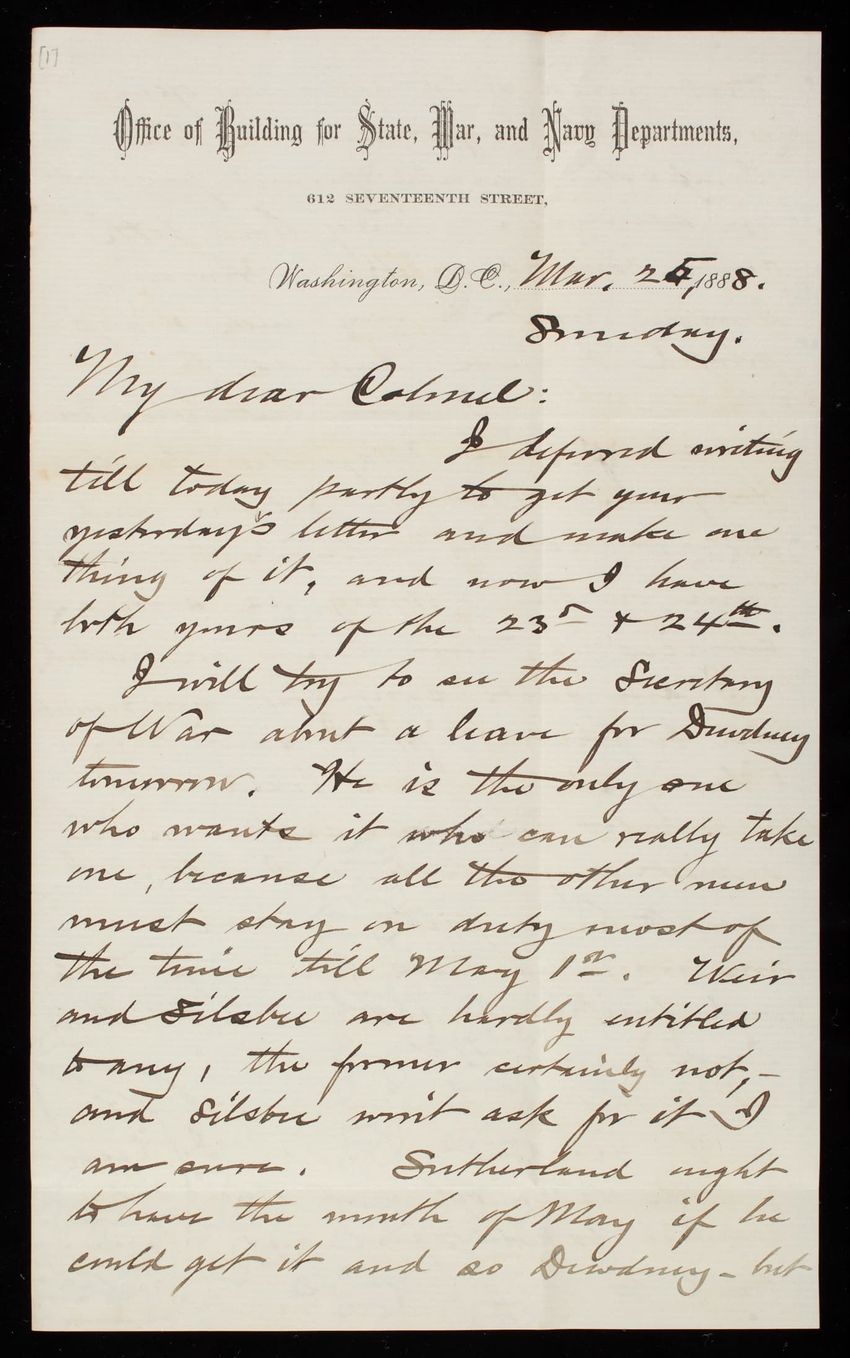 [1]
Office of Building for State, War, and Navy Departments,
612 SEVENTEENTH STREET,
Washington, D. C., Mar. 25, 1888.
Sunday.
My dear Colonel:
I deferred writing
till today partly to get your
yesterday's letter and make one
thing of it, and now I have
both yours of the 23d & 24th.
I will try to see the Secretary
of War about a leave for Dewdney
tomorrow. He is the only one
who wants it who can really take
one, because all the other men
must stay on duty most of
the time till May 1st. Weir
and Silsbee are hardly entitled
to any, the former certainly not, –
and Silsbee won't ask for it I
am sure. Sutherland ought
to have the month of May if he
could get it and so Dewdney – but